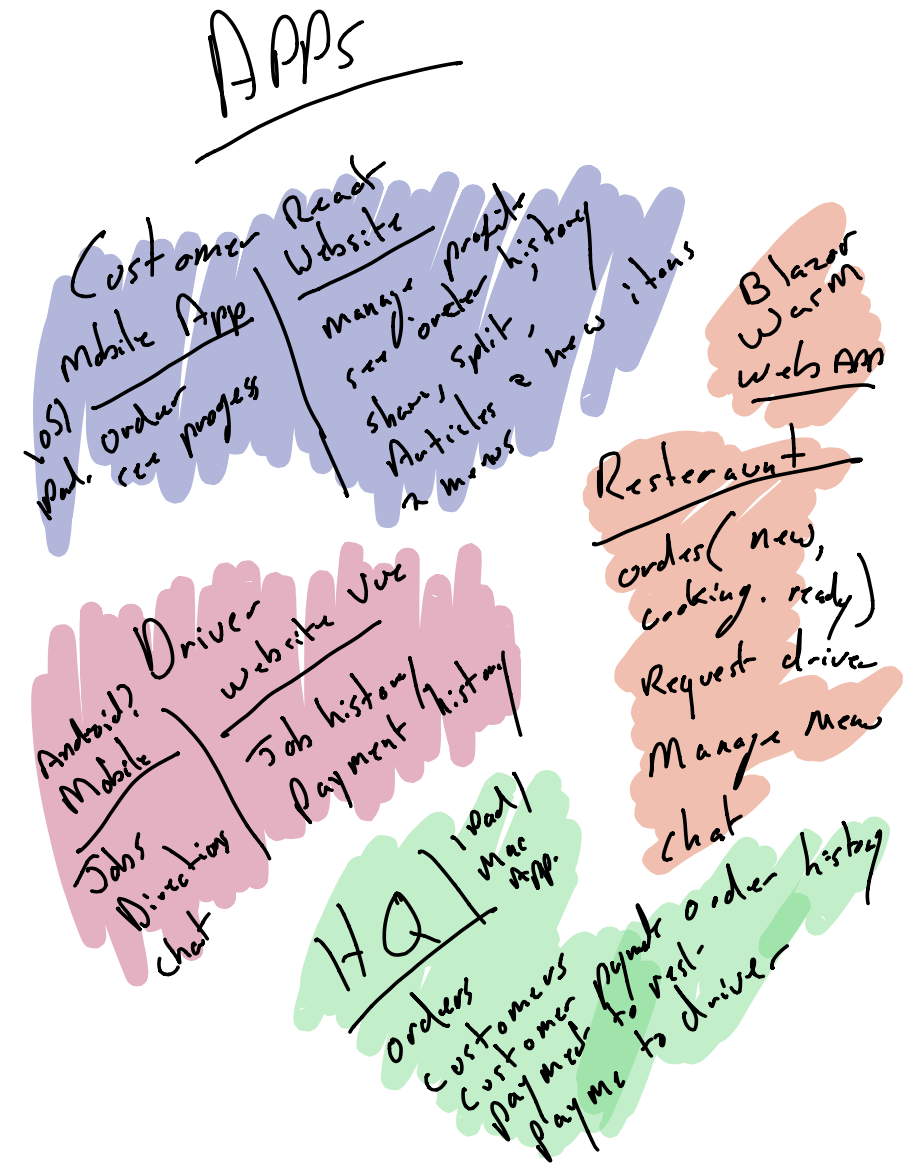 APPs
Customer
Mobile App
iOS/
pad.
order
see progess
React
Website
manage profile
see order history,
share, split,
Articles & new items
& menus
Blazor
Wasm
Web App
Resteraunt
ordes (new,
cooking. ready)
Request driver
Manage Menu
chat
Driver
Android?
Mobile
Jobs
Direction
chat
website Vue
Job history
Payment history
HQ
ipad/
Mac
App.
orders
customers
customer order history
payment to rest-
payme to driver